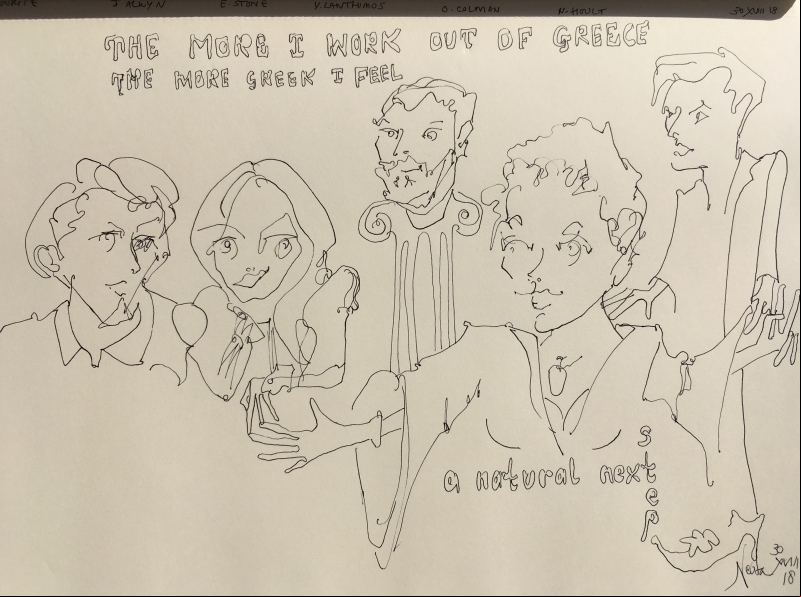 J ALWYN E. STONE Y. LANTHIMOS O. COLMAN N. HOULT 30 XVIII 18
THE MORE I WORK OUT OF GREECE
THE MORE GREEK I FEEL
a natural next
step
30
XVIII
18